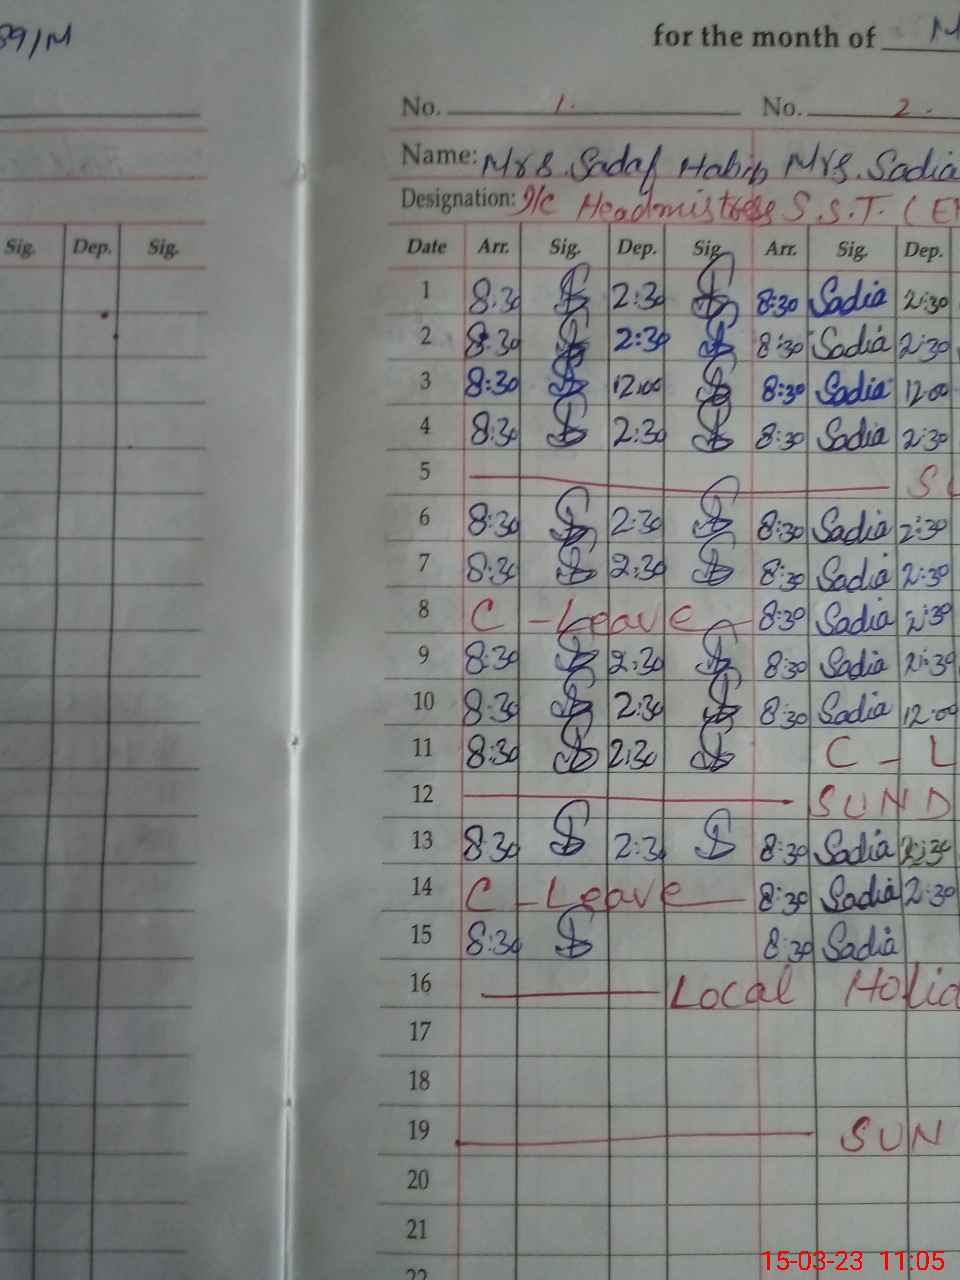 89/M
for the month of M
No. 1. No. 2.
Name: Mrs. Sadaf Habib Mrs. Sadia
Designation: I/c Headmistress S.S.T. (E
Sig. Dep. Sig. Date Arr. Sig. Dep. Sig. Arr. Sig. Dep.
1 8:30 2:30 8:30 Sadia 2:30
2 8:30 2:30 8:30 Sadia 2:30
3 8:30 12:00 8:30 Sadia 12:00
4 8:30 2:30 8:30 Sadia 2:30
5 SU
6 8:30 2:30 8:30 Sadia 2:30
7 8:30 2:30 8:30 Sadia 2:30
8 C - Leave 8:30 Sadia 2:30
9 8:30 2:30 8:30 Sadia 2:30
10 8:30 2:30 8:30 Sadia 12:00
11 8:30 2:30 C - L
12 SUND
13 8:30 2:30 8:30 Sadia 2:30
14 C - Leave 8:30 Sadia 2:30
15 8:30 8:30 Sadia
16 Local Holid
17
18
19 SUN
20
21
22
15-03-23 11:05